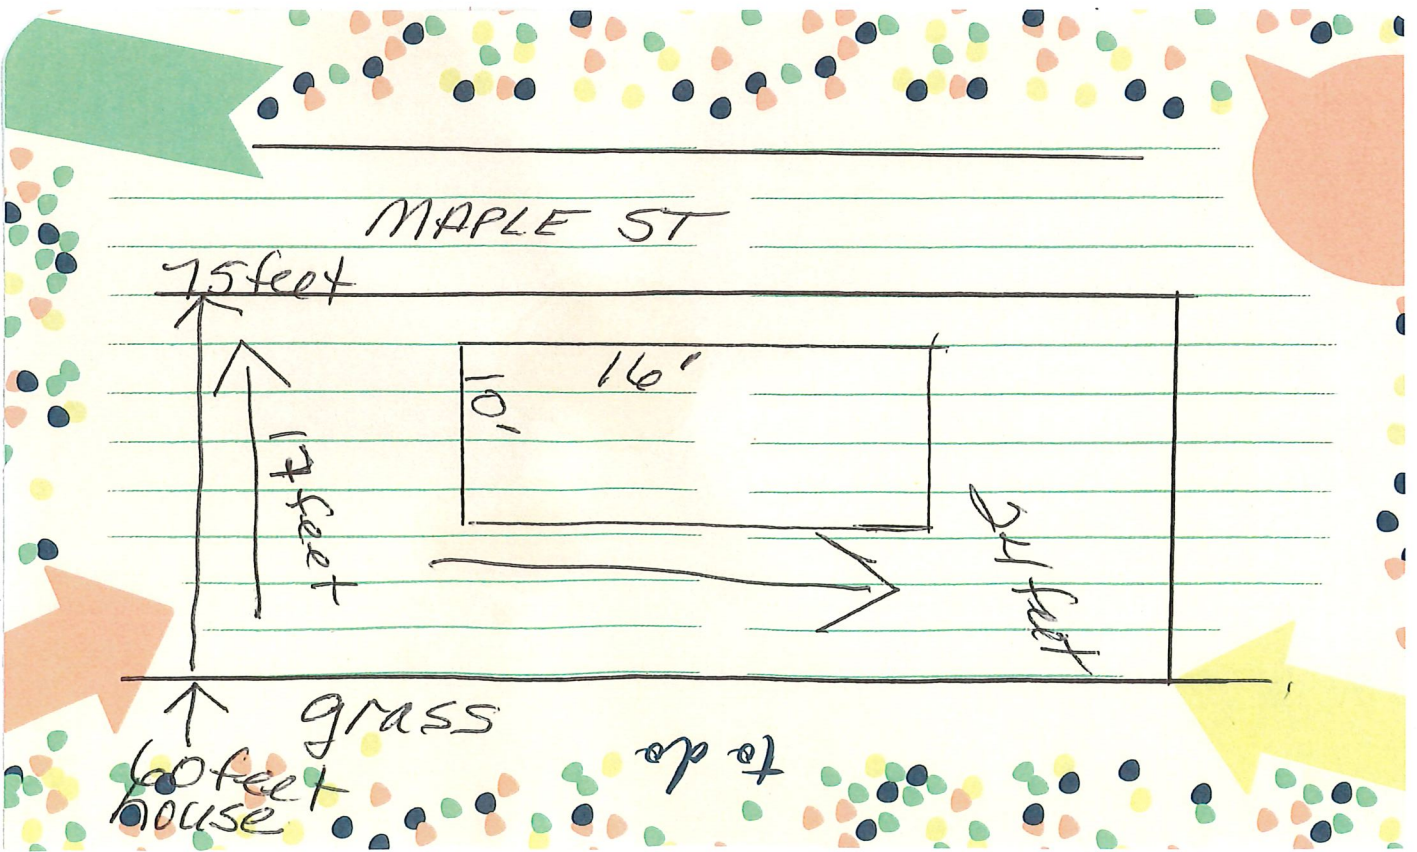 MAPLE ST
75 feet
16'
10'
17 feet
24 feet
grass
to do
60 feet
house